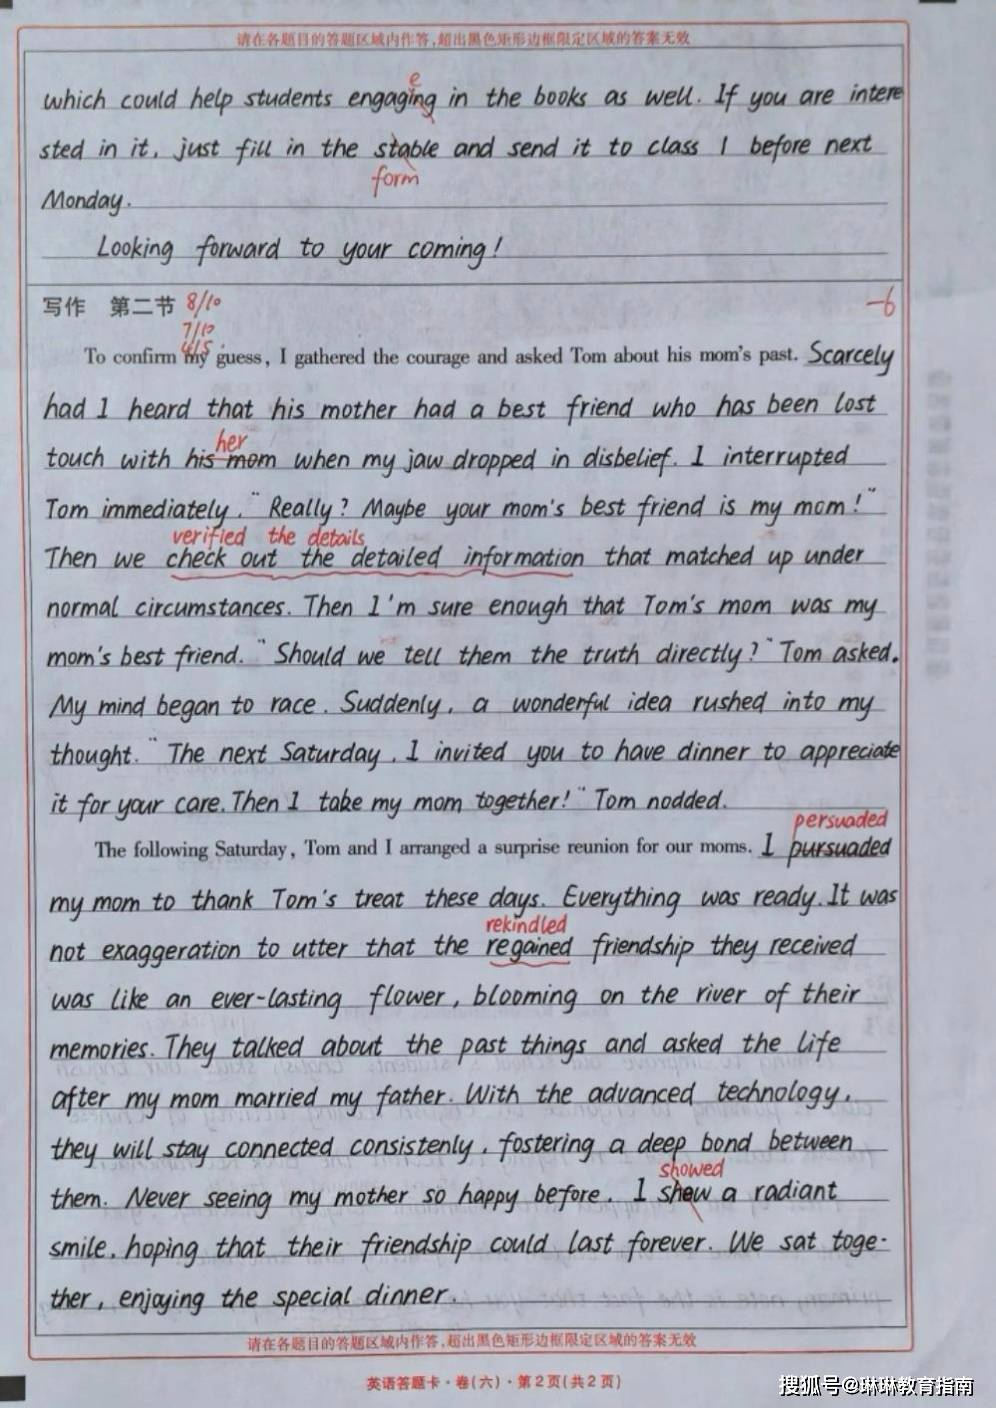 请在各题目的答题区域内作答,超出黑色矩形边框限定区域的答案无效
e
which could help students engaging in the books as well. If you are intere
sted in it, just fill in the stable and send it to class 1 before next
form
Monday.
Looking forward to your coming!
写作 第二节 8/10
-6
7/10
4/5
To confirm my guess, I gathered the courage and asked Tom about his mom's past. Scarcely
had I heard that his mother had a best friend who has been lost
her
touch with his mom when my jaw dropped in disbelief. I interrupted
Tom immediately, "Really? Maybe your mom's best friend is my mom!"
verified the details
Then we check out the detailed information that matched up under
normal circumstances. Then I'm sure enough that Tom's mom was my
mom's best friend. "Should we tell them the truth directly?" Tom asked.
My mind began to race. Suddenly, a wonderful idea rushed into my
thought. "The next Saturday, I invited you to have dinner to appreciate
it for your care. Then I take my mom together!" Tom nodded.
persuaded
The following Saturday, Tom and I arranged a surprise reunion for our moms. I pursuaded
my mom to thank Tom's treat these days. Everything was ready. It was
rekindled
not exaggeration to utter that the regained friendship they received
was like an ever-lasting flower, blooming on the river of their
memories. They talked about the past things and asked the life
after my mom married my father. With the advanced technology,
they will stay connected consistenly, fostering a deep bond between
showed
them. Never seeing my mother so happy before, I shew a radiant
smile, hoping that their friendship could last forever. We sat toge-
ther, enjoying the special dinner.
请在各题目的答题区域内作答,超出黑色矩形边框限定区域的答案无效
英语答题卡·卷(六)·第2页(共2页)
搜狐号@琳琳教育指南